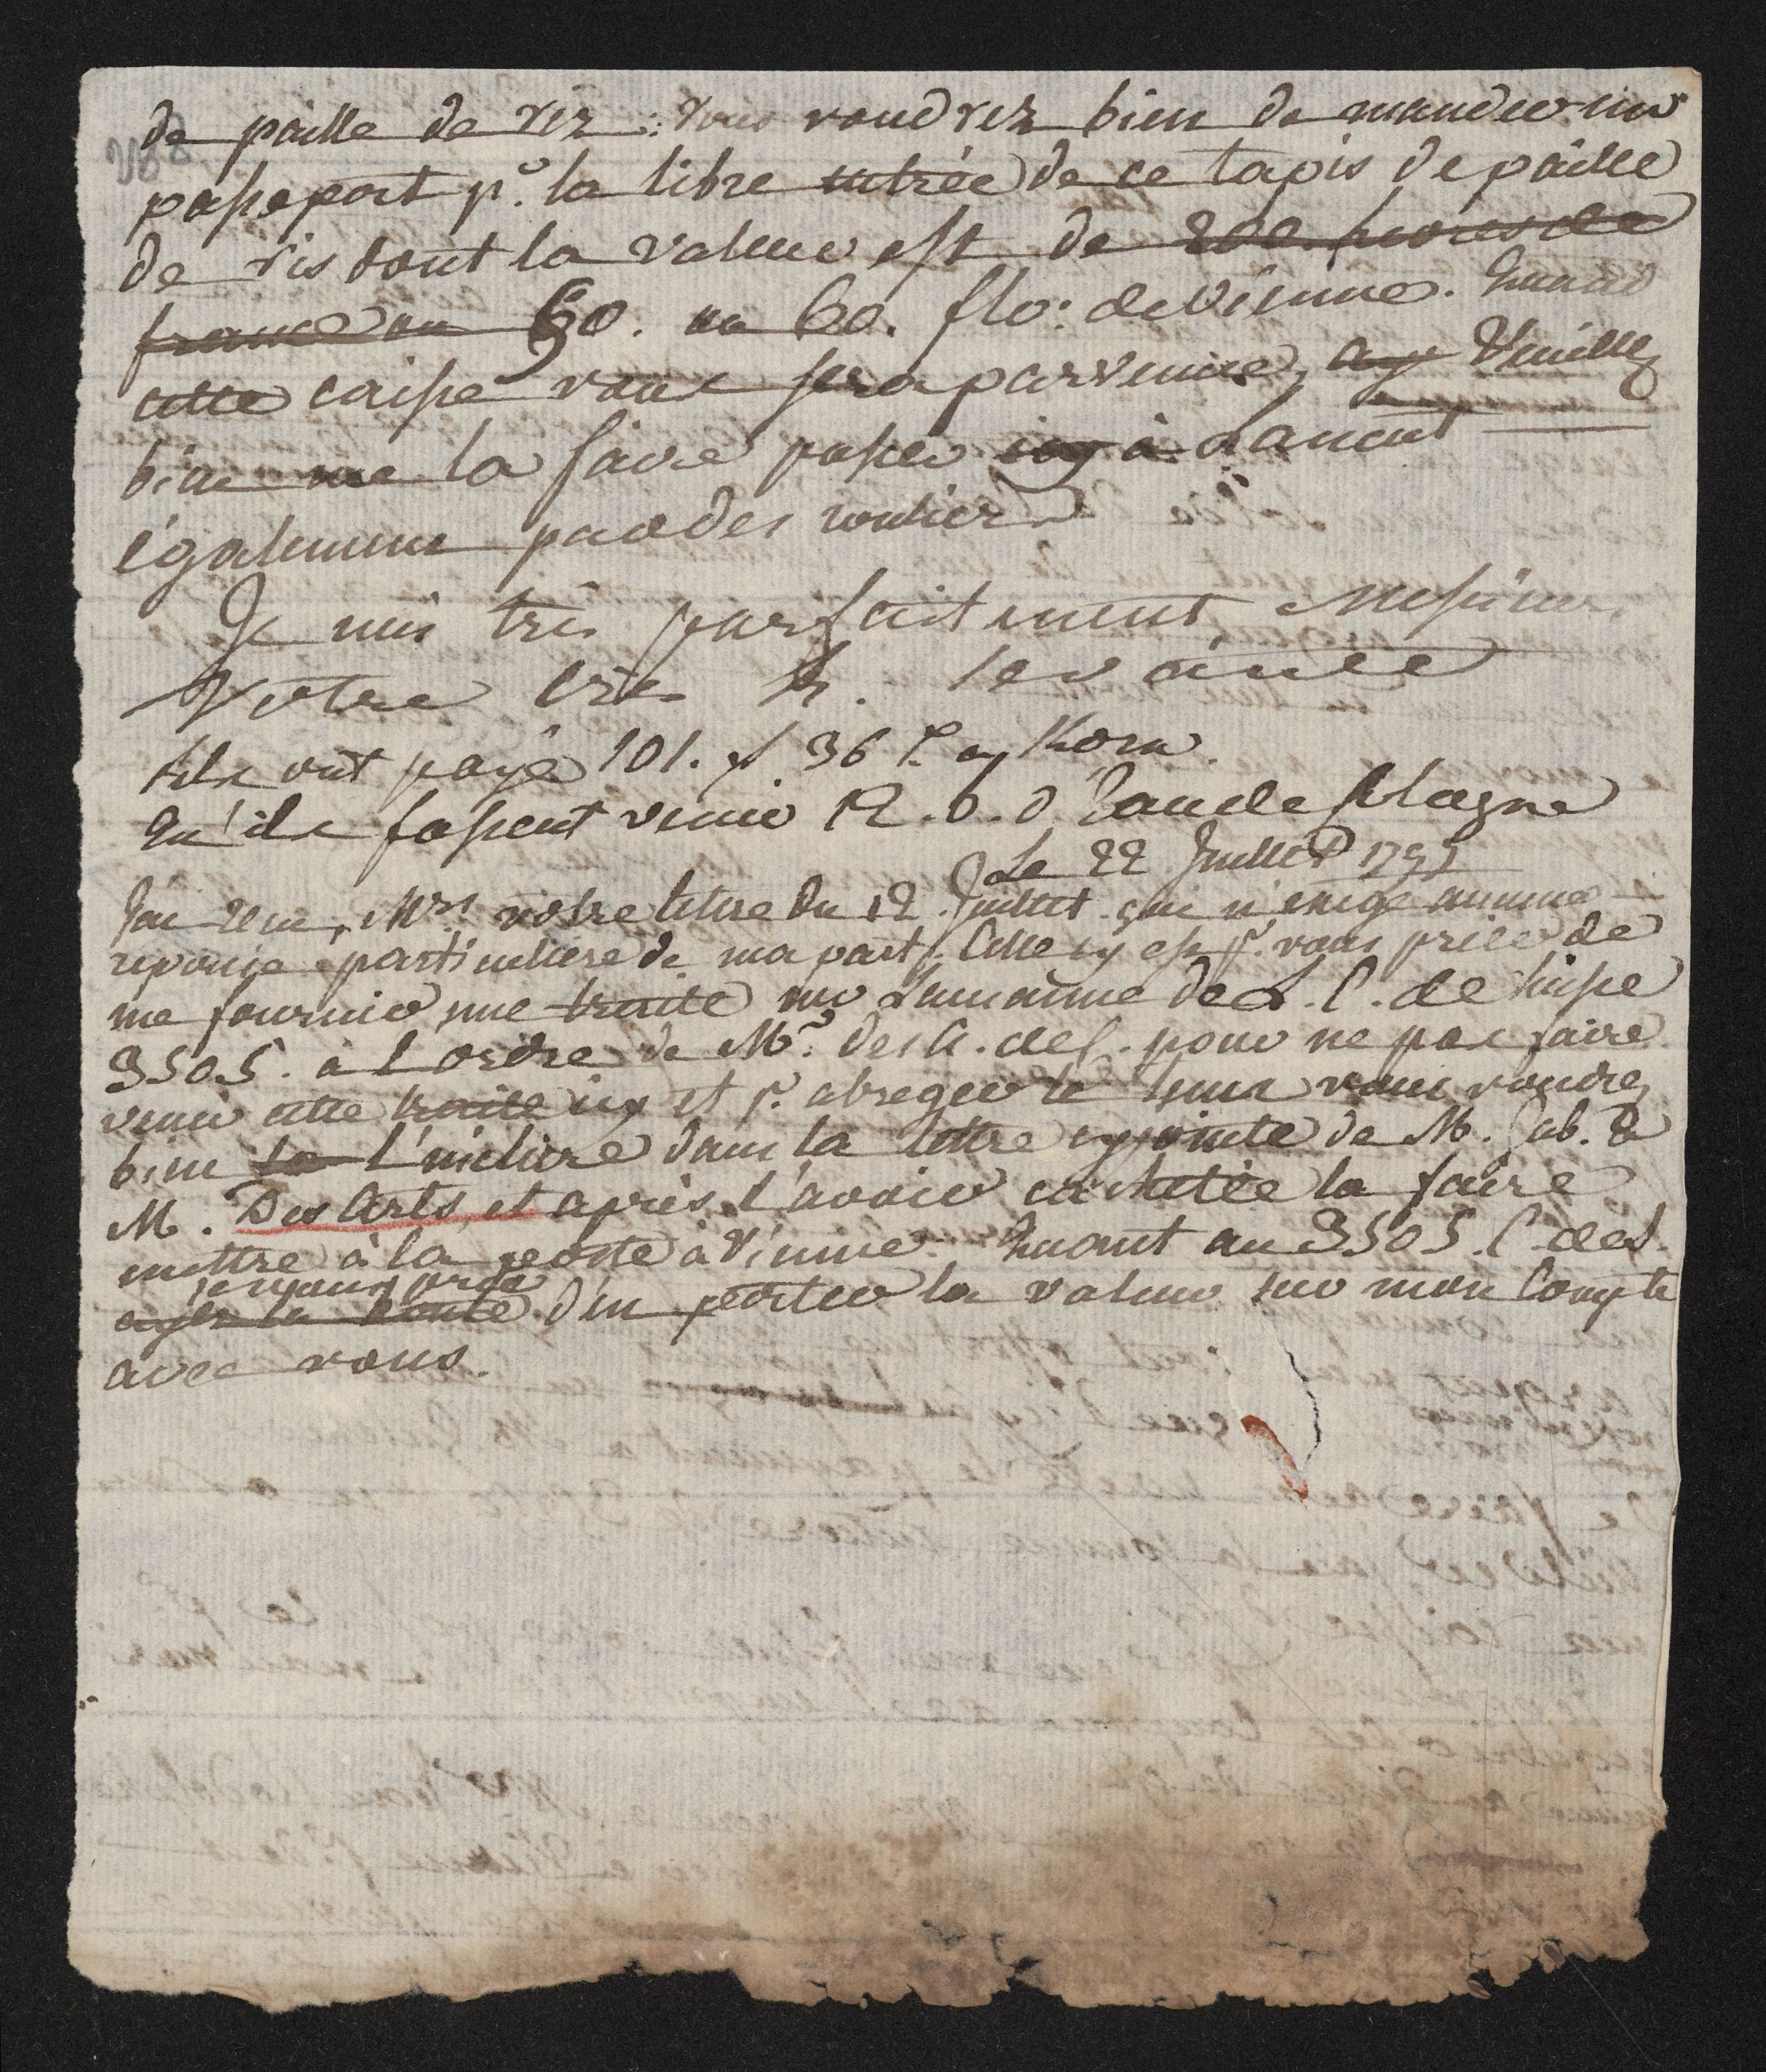 de paille de riz. Vous voudrez bien demander un
passeport pr. la libre entrée de ce tapis de paille
de ris dont la valeur est de 200. livres de
france ou 50. ou 60. flo: de Vienne. Quand
cette caisse vous sera parvenue, Veuillez
bien me la faire passer icy à Lancut
également par des rouliers
Je suis très parfaitement, Messieurs,
Votre très h. servante
Ils ont payé 101. # 36 x. ay Korn.
Qu'ils fassent venir 12. b. d'Eau de Cologne
Le 22 Juillet 179
J'ai reçu, Mrs votre lettre du 12. Juillet qui n'exige aucune
reponse particuliere de ma part. Celle cy est pr. vous prier de
me fournir une traite sur Lausanne de L. C. de Suisse
3505. à l'ordre de Mr. des A. def. pour ne pas faire
venir cette traite icy et pr. abreger le tems vous voudrez
bien la l'inclure dans la lettre cy jointe de M. Cab. à
M. Des Arts, et après l'avoir cachetée la faire
mettre à la poste à Vienne. Quant au 3505. C. de S.
je vous prie
ayez la bonté d'en porter la valeur sur mon Compte
avec vous.